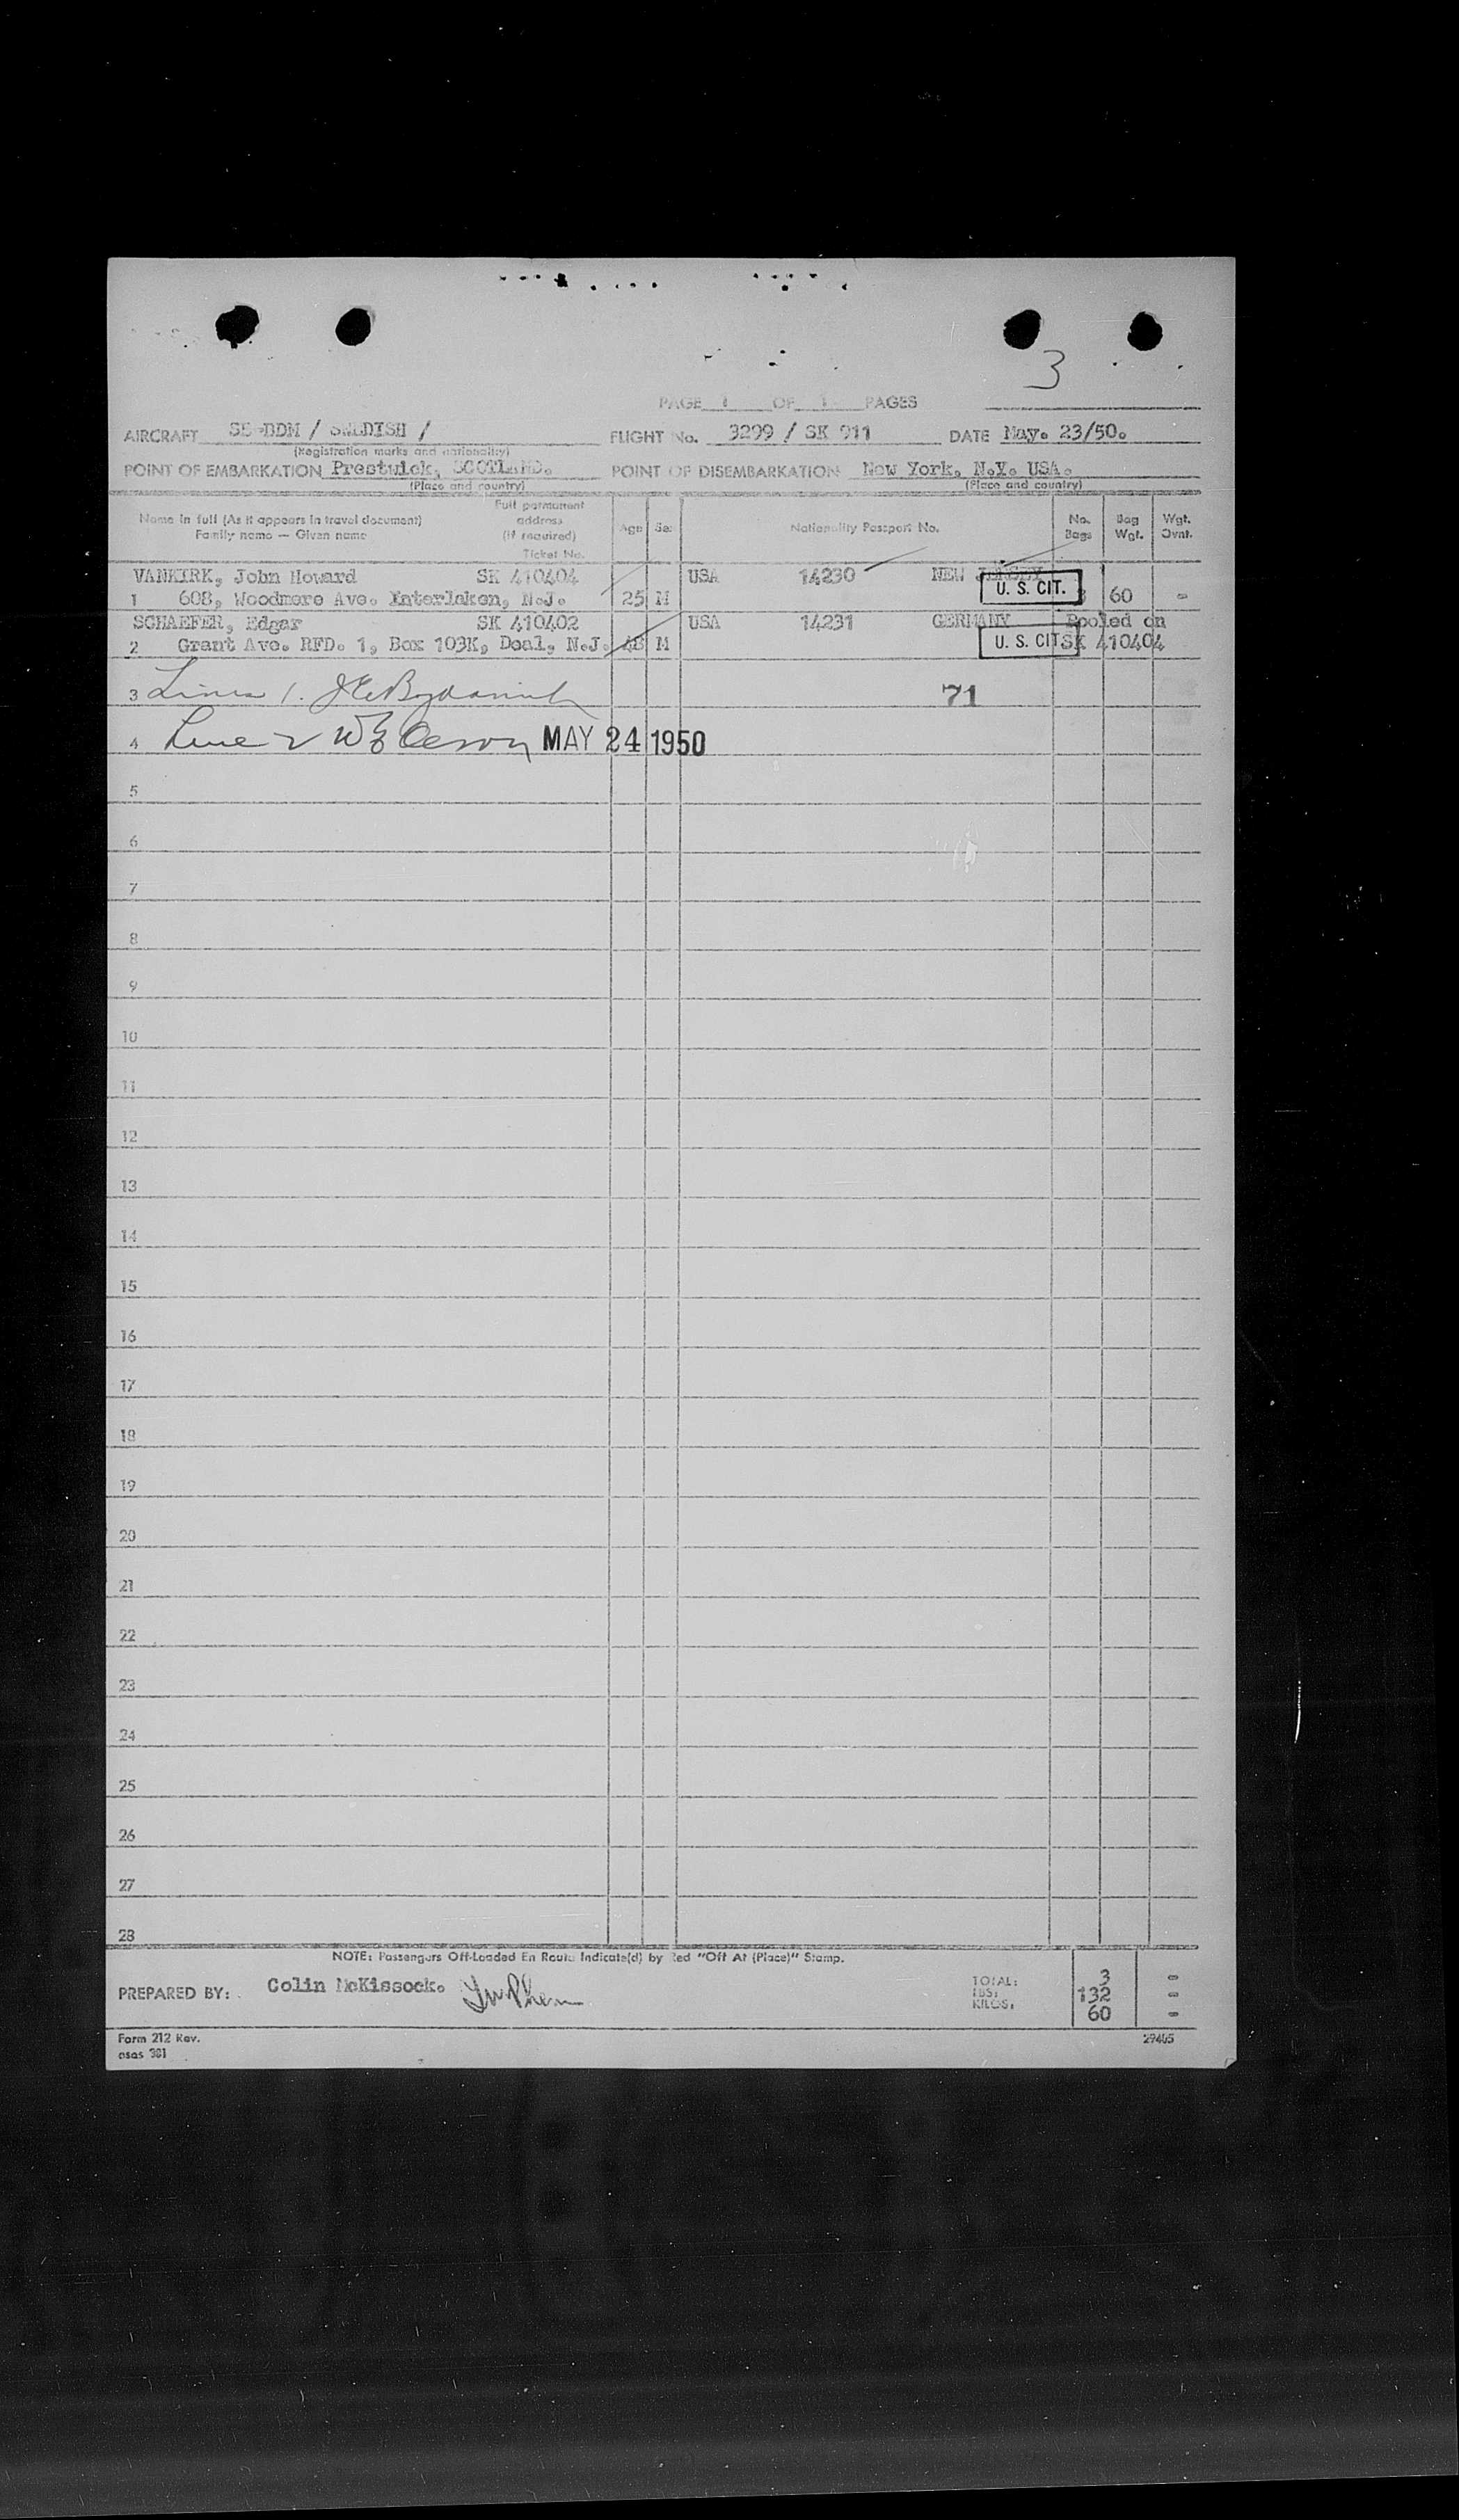 3
PAGE 1 OF 1 PAGES
AIRCRAFT SE-BDM / SWEDISH / FLIGHT No. 3299 / SK 911 DATE May. 23/50.
(Registration marks and nationality)
POINT OF EMBARKATION Prestwick, SCOTLAND. POINT OF DISEMBARKATION New York, N.Y. USA.
(Place and country) (Place and country)
Name in full (As it appears in travel document) Full permanent address (If required) Age Sex Nationality Passport No. No. Bags Bag Wgt. Wgt. Ovnt.
Family name — Given name Ticket No.
VANKIRK, John Howard SK 410404 USA 14230 NEW JERSEY
1 608, Woodmere Ave. Interlaken, N.J. 25 M U. S. CIT. 3 60 -
SCHAEFER, Edgar SK 410402 USA 14231 GERMANY Pooled on
2 Grant Ave. RFD. 1, Box 103K, Deal, N.J. 48 M U. S. CIT SK 410404
3 71
4 MAY 24 1950
5
6
7
8
9
10
11
12
13
14
15
16
17
18
19
20
21
22
23
24
25
26
27
28
NOTE: Passengers Off-Loaded En Route Indicate(d) by Red "Off At (Place)" Stamp.
PREPARED BY: Colin McKissock. TOTAL: 3 -
LBS: 132 -
KILOS: 60 -
Form 212 Rev. 29405
osas 381